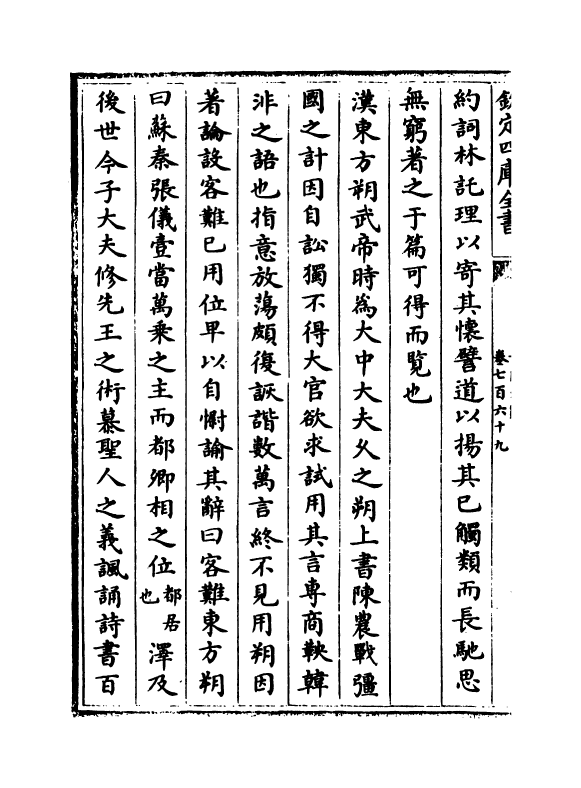 欽定四庫全書
卷七百六十九
約詞林託理以寄其懷譬道以揚其己觸類而長馳思
無窮著之于篇可得而覽也
漢東方朔武帝時為大中大夫久之朔上書陳農戰彊
國之計因自訟獨不得大官欲求試用其言專商鞅韓
非之語也指意放蕩頗復詼諧數萬言終不見用朔因
著論設客難已用位卑以自慰諭其辭曰客難東方朔
曰蘇秦張儀壹當萬乗之主而都卿相之位都居也澤及
後世今子大夫修先王之術慕聖人之義諷誦詩書百